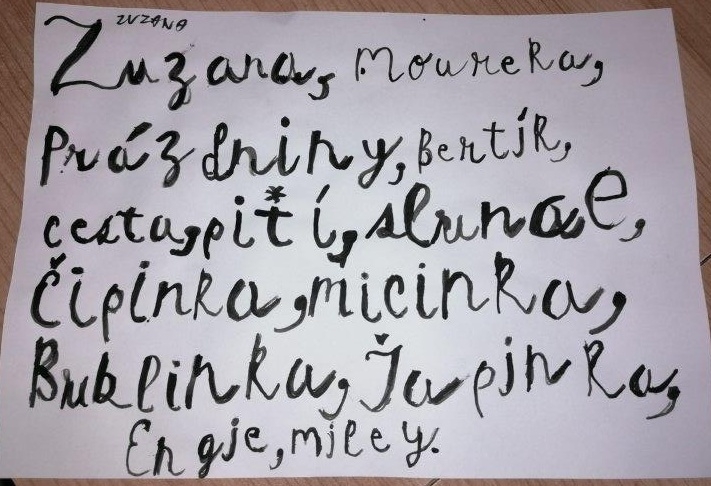 ZUZANA
Zuzana, Moureka,
Prázdniny, Bertík,
cesta, pití, slunce,
Čipinka, micinka,
Bublinka, Japinka,
Engie, miley.